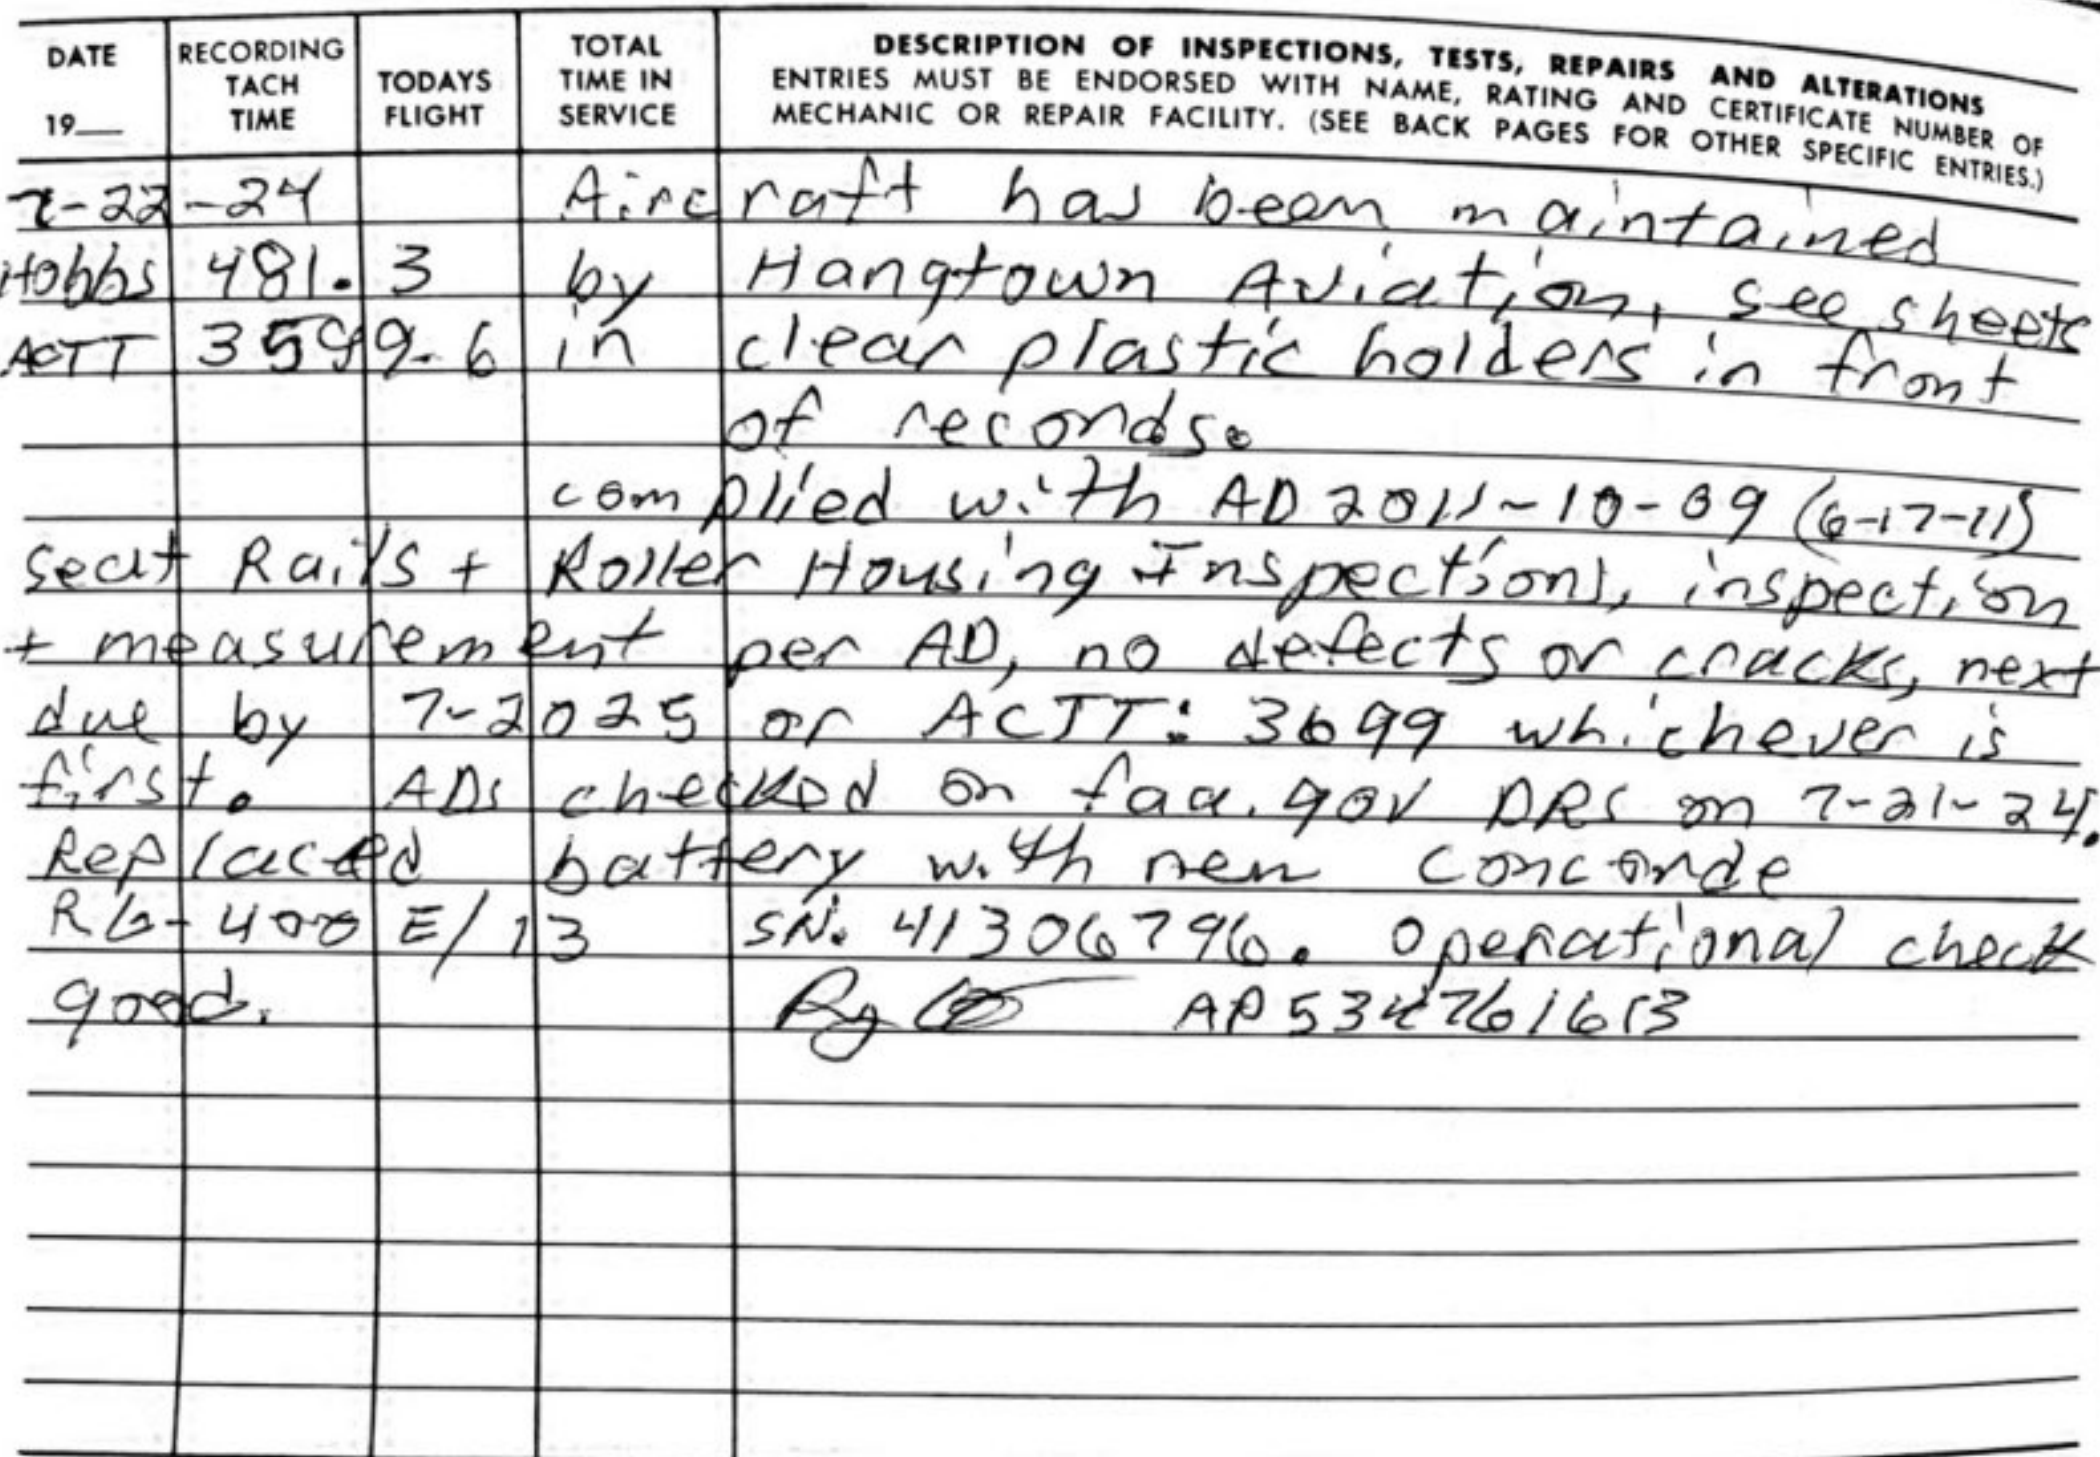 DATE 19__ RECORDING TACH TIME TODAYS FLIGHT TOTAL TIME IN SERVICE DESCRIPTION OF INSPECTIONS, TESTS, REPAIRS AND ALTERATIONS
ENTRIES MUST BE ENDORSED WITH NAME, RATING AND CERTIFICATE NUMBER OF
MECHANIC OR REPAIR FACILITY. (SEE BACK PAGES FOR OTHER SPECIFIC ENTRIES.)
7-22-24 Aircraft has been maintained
Hobbs 481.3 by Hangtown Aviation, see sheets
ACTT 3599.6 in clear plastic holders in front
of records.
complied with AD 2011-10-09 (6-17-11)
seat Rails + Roller Housing Inspections, inspection
+ measurement per AD, no defects or cracks, next
due by 7-2025 or ACTT: 3699 whichever is
first. ADs checked on faa.gov DRS on 7-21-24.
Replaced battery with new Concorde
RG-400E/13 SN. 41306796. Operational check
good. AP